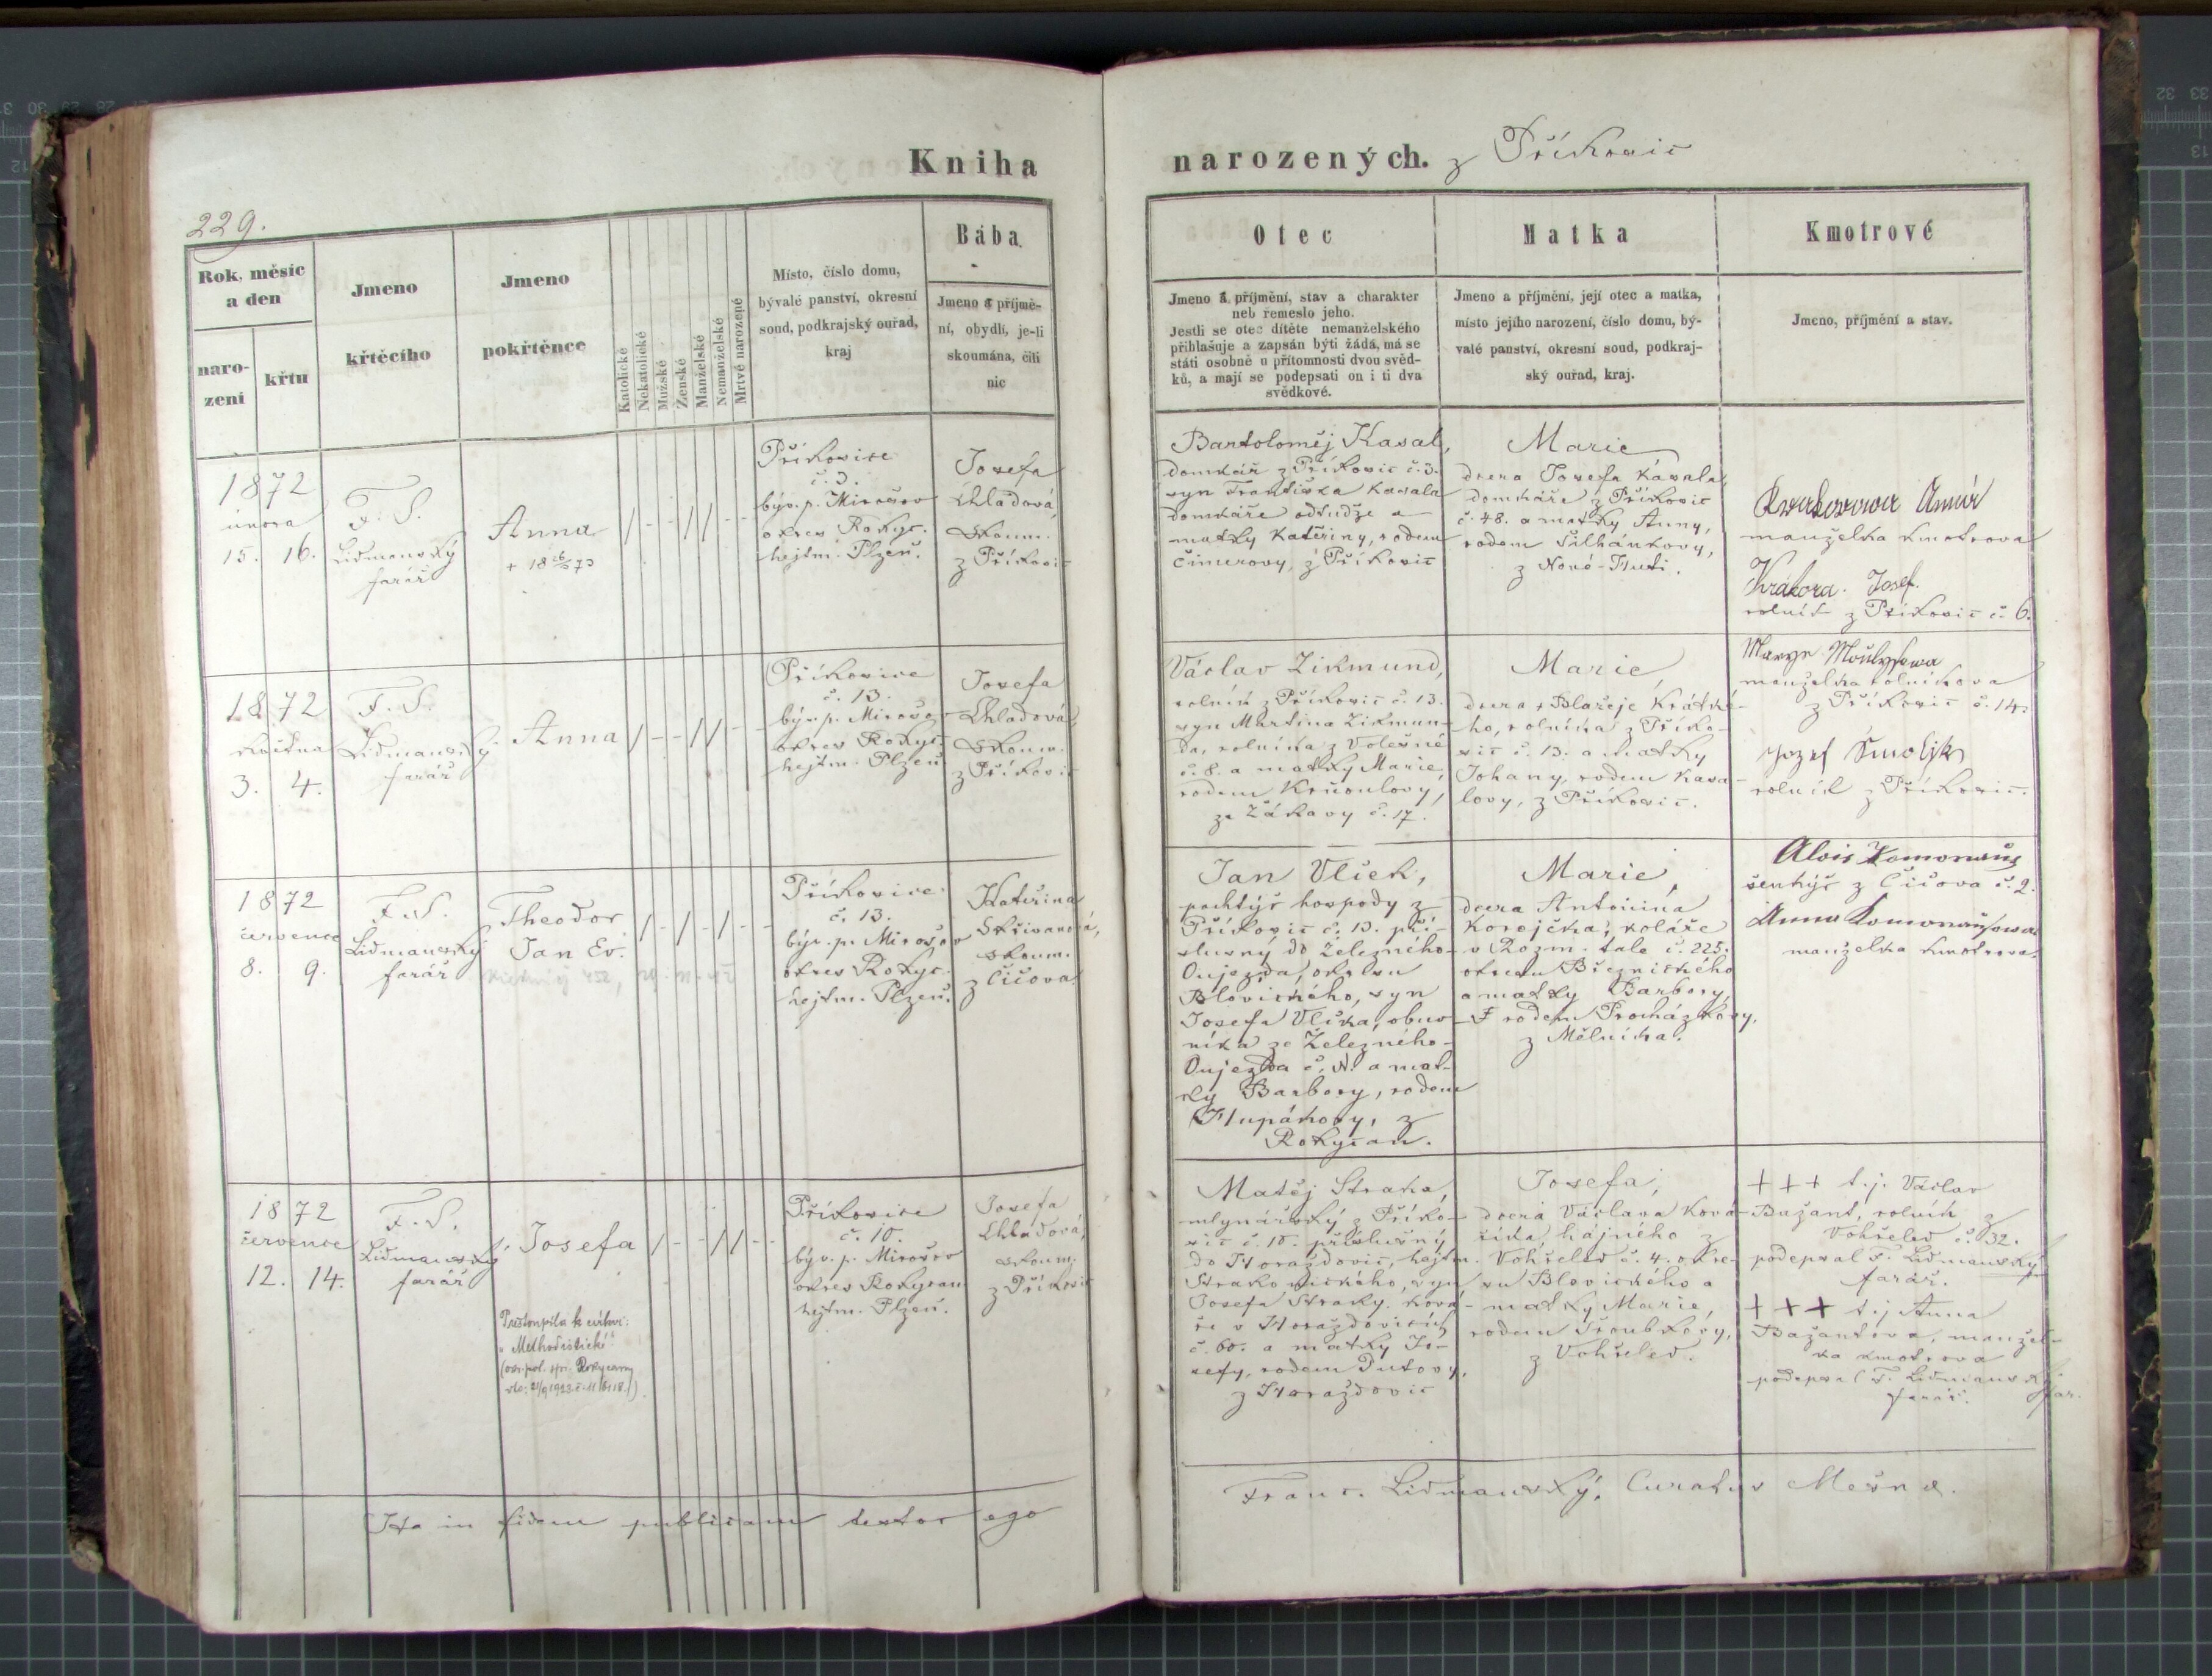 Kniha
narozených. z Příkovic
229.
Rok, měsíc
a den
naro-
zení
křtu
Jmeno
křtěcího
Jmeno
pokřtěnce
Katolické
Nekatolické
Mužské
Ženské
Manželské
Nemanželské
Mrtvě narozené
Místo, číslo domu,
bývalé panství, okresní
soud, podkrajský ouřad,
kraj
Bába
Jmeno a příjmě-
ní, obydlí, je-li
skoumána, čili
nic
Otec
Jmeno a příjmění, stav a charakter
neb řemeslo jeho.
Jestli se otec dítěte nemanželského
přihlašuje a zapsán býti žádá, má se
státi osobně u přítomnosti dvou svěd-
ků, a mají se podepsati on i ti dva
svědkové.
Matka
Jmeno a příjmění, její otec a matka,
místo jejího narození, číslo domu, bý-
valé panství, okresní soud, podkraj-
ský ouřad, kraj.
Kmotrové
Jmeno, příjmění a stav.
1872
února
15. 16.
F. S.
Lidmanský
farář
Anna
Příkovice
č. 3.
býv. p. Mirošov
okres Rokyc.
hejtm. Plzeň.
Josefa
Chladová,
skoum.
z Příkovic
Bartoloměj Kasal,
domkář z Příkovic č. 3.
syn Františka Kasala
domkáře odtudže a
matky Kateřiny, rodem
Cimurovy, z Příkovic
Marie,
dcera Josefa Kasala
domkáře z Příkovic
č. 48. a matky Anny,
rodem Šilhánkovy,
z Nové-Huti.
manželka kmotrova
Krákora. Josef.
rolník z Příkovic č. 6.
1872
května
3. 4.
F. S.
Lidmanský
farář
Anna
Příkovice
č. 13.
býv. p. Mirošov
okres Rokyc.
hejtm. Plzeň
Josefa
Chladová
skoum.
z Příkovic
Václav Zikmund,
rolník z Příkovic č. 13.
syn Martina Zikmun-
da, rolníka z Volešné
č. 8. a matky Marie,
rodem Krňoulovy,
ze Žákavy č. 17.
Marie,
dcera + Blažeje Krátké-
ho, rolníka z Příko-
vic č. 13. a matky
Johany, rodem Kasa-
lovy, z Příkovic.
manželka rolníkova
z Příkovic č. 14.
Jozef Smolik
rolník z Příkovic.
1872
července
8. 9.
F. S.
Lidmanský
farář
Theodor
Jan Ev.
Příkovice
č. 13.
býv. p. Mirošov
okres Rokyc.
hejtm. Plzeň.
Kateřina
Skřivanová,
skoum.
z Čičova
Jan Vlček,
pachtýř hospody z
Příkovic č. 13. pří-
slušný do Železného-
Oujezda, okresu
Blovického, syn
Josefa Vlčka, obuv-
níka ze Železného-
Oujezda č. N. a mat-
ky Barbory, rodem
Hupákovy, z
Rokycan.
Marie,
dcera Antonína
Korejčka, koláře
v Rozm. tale č. 225.
okresu Březnického
a matky Barbory,
rodem Procházkovy,
z Mělníka.
Alois Komonauš
šenkýř z Čičova č. 2.
Anna
manželka kmotrova.
1872
července
12. 14.
F. S.
Lidmanský
farář
Josefa
Přestoupila k církvi:
„Methodistické“
(osv. pol. spr. Rokycany
Příkovice
č. 10.
býv. p. Mirošov
okres Rokycan
hejtm. Plzeň.
Josefa
Chladová,
skoum.
z Příkovic
Matěj Straka,
mlynářský z Příko-
vic č. 10. příslušný
do Horažďovic, hejtm.
Strakonického, syn
Josefa Straky, ková-
ře v Horažďovicích
č. 60. a matky Jo-
sefy, rodem Dutovy,
z Horažďovic
Josefa,
dcera Václava Ková-
říka, hájného z
Vohřeled č. 4. okre-
su Blovického a
matky Marie,
rodem Šroubkovy,
z Vohřeled.
+++ t. j. Václav
Bažant, rolník z
Vohřeled č. 32.
podepsal F. Lidmanský
farář.
+++ t. j. Anna
Bažantova, manžel-
ka kmotrova
podepsal F. Lidmanský far.
farář.
Ita in fidem publicam testor ego
Franc. Lidmanský, Curatus Mešn.